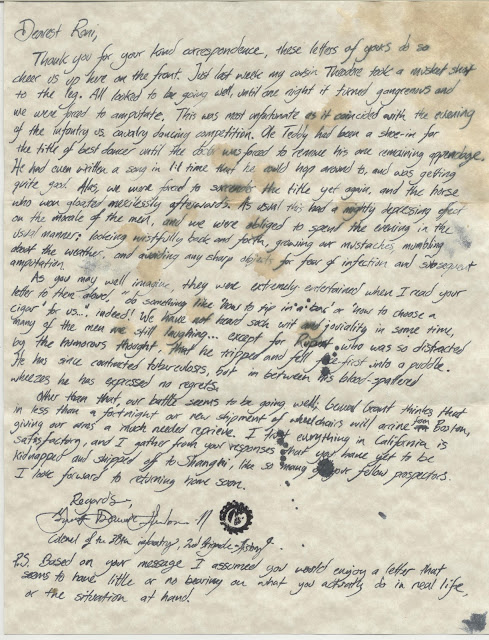 Dearest Rani,
Thank you for your kind correspondence, these letters of yours do so
cheer us up here on the front. Just last week my cousin Theodore took a musket shot
to the leg. All looked to be going well, until one night it turned gangrenous and
we were forced to amputate. This was most unfortunate as it coincided with the evening
of the infantry vs. cavalry dancing competition. Ole Teddy had been a shoe-in for
the title of best dancer until the doctor was forced to remove his one remaining appendage.
He had even written a song in time that he could hop around to, and was getting
quite good. Alas, we were forced to surrender the title yet again, and the horse
who won gloated mercilessly afterwards. As usual this had a mighty depressing effect
on the morale of the men, and we were obliged to spend the evening in the
usual manner: looking wistfully back and forth, growing our mustaches, mumbling
about the weather, and avoiding any sharp objects for fear of infection and subsequent
amputation.
As you may well imagine, they were extremely entertained when I read your
letter to them aloud, "do something like how to tip in a bar or how to choose a
cigar for us..." indeed! We have not heard such wit and joviality in some time,
many of the men are still laughing... except for Rupert who was so distracted
by the humorous thought, that he tripped and fell face-first into a puddle.
He has since contracted tuberculosis, but in between his blood-spattered
wheezes he has expressed no regrets.
Other than that, our battle seems to be going well; thinks that
in less than a fortnight our new shipment of wheelchairs will arrive from Boston,
giving our arms a much needed reprieve. I trust everything in California is
satisfactory, and I gather from your responses that you have yet to be
kidnapped and shipped off to Shanghai, like so many of your fellow prospectors.
I look forward to returning home soon.
Regards,
II
Colonel of the 28th infantry, 2nd Brigade
P.S. Based on your message I assumed you would enjoy a letter that
seems to have little or no bearing on what you actually do in real life,
or the situation at hand.